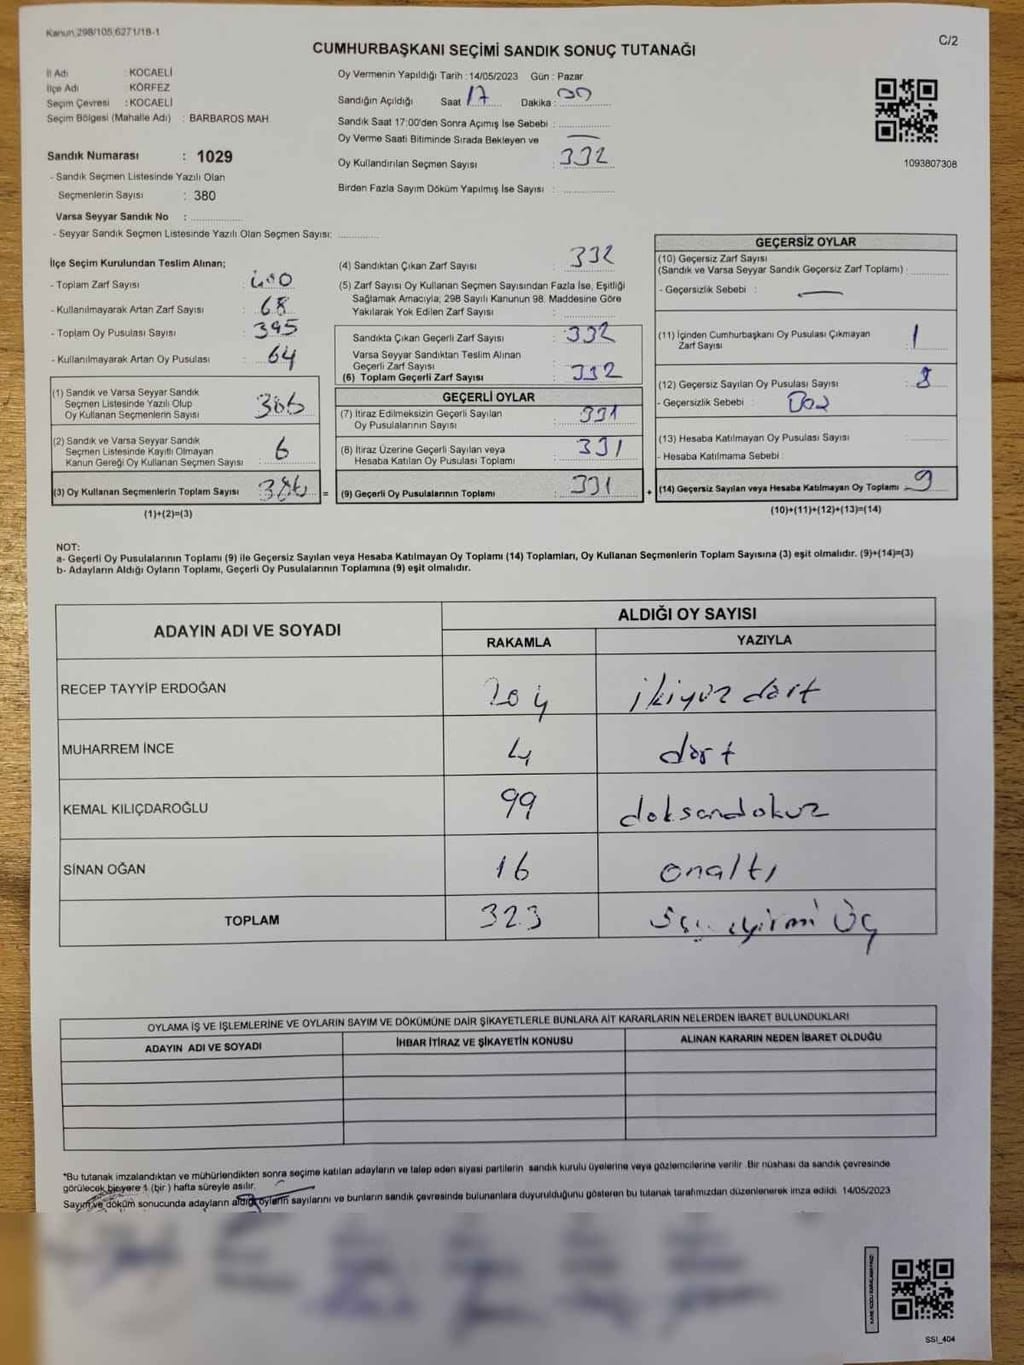 Kanun 298/105,6271/18-1
C/2
CUMHURBAŞKANI SEÇİMİ SANDIK SONUÇ TUTANAĞI
İl Adı : KOCAELİ
İlçe Adı : KÖRFEZ
Seçim Çevresi : KOCAELİ
Seçim Bölgesi (Mahalle Adı) : BARBAROS MAH
Sandık Numarası : 1029
- Sandık Seçmen Listesinde Yazılı Olan
Seçmenlerin Sayısı : 380
Varsa Seyyar Sandık No :
- Seyyar Sandık Seçmen Listesinde Yazılı Olan Seçmen Sayısı:
Oy Vermenin Yapıldığı Tarih : 14/05/2023 Gün : Pazar
Sandığın Açıldığı Saat 17 Dakika : 00
Sandık Saat 17:00'den Sonra Açımış İse Sebebi :
Oy Verme Saati Bitiminde Sırada Bekleyen ve
Oy Kullandırılan Seçmen Sayısı : 332
Birden Fazla Sayım Döküm Yapılmış İse Sayısı :
1093807308
İlçe Seçim Kurulundan Teslim Alınan;
- Toplam Zarf Sayısı : 400
- Kullanılmayarak Artan Zarf Sayısı : 68
- Toplam Oy Pusulası Sayısı : 395
- Kullanılmayarak Artan Oy Pusulası : 64
(1) Sandık ve Varsa Seyyar Sandık
Seçmen Listesinde Yazılı Olup
Oy Kullanan Seçmenlerin Sayısı
(2) Sandık ve Varsa Seyyar Sandık
Seçmen Listesinde Kayıtlı Olmayan
Kanun Gereği Oy Kullanan Seçmen Sayısı : 6
(3) Oy Kullanan Seçmenlerin Toplam Sayısı
(1)+(2)=(3)
(4) Sandıktan Çıkan Zarf Sayısı : 332
(5) Zarf Sayısı Oy Kullanan Seçmen Sayısından Fazla İse, Eşitliği
Sağlamak Amacıyla, 298 Sayılı Kanunun 98. Maddesine Göre
Yakılarak Yok Edilen Zarf Sayısı :
Sandıkta Çıkan Geçerli Zarf Sayısı : 332
Varsa Seyyar Sandıktan Teslim Alınan
Geçerli Zarf Sayısı
(6) Toplam Geçerli Zarf Sayısı : 332
GEÇERLİ OYLAR
(7) İtiraz Edilmeksizin Geçerli Sayılan
Oy Pusulalarının Sayısı : 331
(8) İtiraz Üzerine Geçerli Sayılan veya
Hesaba Katılan Oy Pusulası Toplamı : 331
= (9) Geçerli Oy Pusulalarının Toplamı : 331
GEÇERSİZ OYLAR
(10) Geçersiz Zarf Sayısı
(Sandık ve Varsa Seyyar Sandık Geçersiz Zarf Toplamı) :
- Geçersizlik Sebebi :
(11) İçinden Cumhurbaşkanı Oy Pusulası Çıkmayan
Zarf Sayısı : 1
(12) Geçersiz Sayılan Oy Pusulası Sayısı : 8
- Geçersizlik Sebebi :
(13) Hesaba Katılmayan Oy Pusulası Sayısı :
- Hesaba Katılmama Sebebi :
+ (14) Geçersiz Sayılan veya Hesaba Katılmayan Oy Toplamı 9
(10)+(11)+(12)+(13)=(14)
NOT:
a- Geçerli Oy Pusulalarının Toplamı (9) ile Geçersiz Sayılan veya Hesaba Katılmayan Oy Toplamı (14) Toplamları, Oy Kullanan Seçmenlerin Toplam Sayısına (3) eşit olmalıdır. (9)+(14)=(3)
b- Adayların Aldığı Oyların Toplamı, Geçerli Oy Pusulalarının Toplamına (9) eşit olmalıdır.
ADAYIN ADI VE SOYADI
ALDIĞI OY SAYISI
RAKAMLA YAZIYLA
RECEP TAYYİP ERDOĞAN 204 ikiyüz dört
MUHARREM İNCE 4 dört
KEMAL KILIÇDAROĞLU 99 doksandokuz
SİNAN OĞAN 16 onaltı
TOPLAM 323 yirmi Üç
OYLAMA İŞ VE İŞLEMLERİNE VE OYLARIN SAYIM VE DÖKÜMÜNE DAİR ŞİKAYETLERLE BUNLARA AİT KARARLARIN NELERDEN İBARET BULUNDUKLARI
ADAYIN ADI VE SOYADI İHBAR İTİRAZ VE ŞİKAYETİN KONUSU ALINAN KARARIN NEDEN İBARET OLDUĞU
*Bu tutanak imzalandıktan ve mühürlendikten sonra seçime katılan adayların ve talep eden siyasi partilerin sandık kurulu üyelerine veya gözlemcilerine verilir .Bir nüshası da sandık çevresinde
görülecek bir yere 1 (bir ) hafta süreyle asılır.
Sayım ve döküm sonucunda adayların aldığı oyların sayılarını ve bunların sandık çevresinde bulunanlara duyurulduğunu gösteren bu tutanak tarafımızdan düzenlenerek imza edildi. 14/05/2023
SSI_404